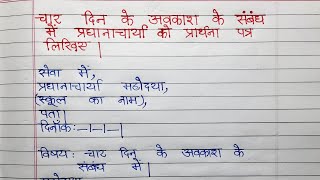 चार दिन के अवकाश के संबंध
में प्रधानाचार्या को प्रार्थना पत्र
लिखिए |
सेवा में,
प्रधानाचार्या महोदया,
(स्कूल का नाम),
पता |
दिनाँक:-|-|-|
विषय: -चार दिन के अवकाश के
संबंध में |